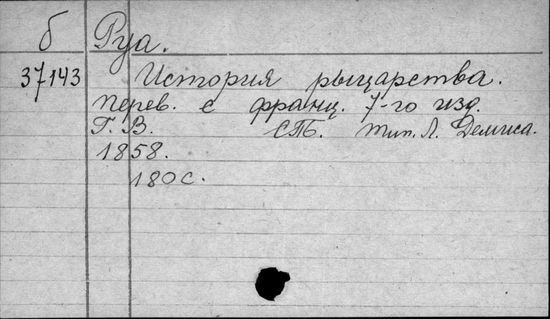 б Руа.
37143 История рыцарства.
перев. с франц. 7-го изд.
Г. В. СПБ. тип. Л. Демиса.
1858.
180 с.